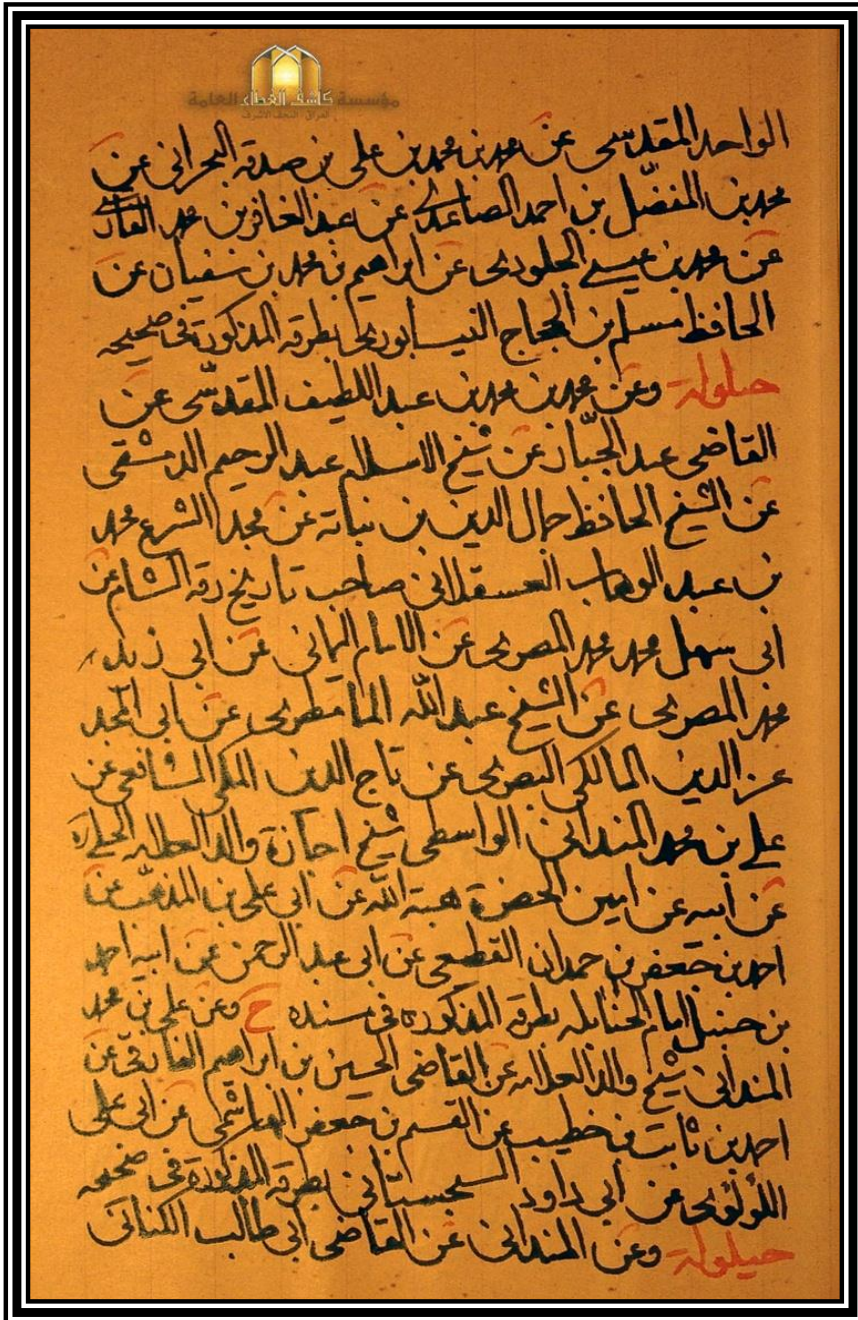 مؤسسة كاشف الغطاء العامة
العراق - النجف الأشرف
الواحد المقدسي عن محمد بن محمد بن علي بن صدقه البحراني عن
محمد بن المفضّل بن احمد الصاعدي عن عبد الغافر بن محمد الفارسي
عن محمد بن عيسى الجلودي عن ابراهيم بن محمد بن سفيان عن
الحافظ مسلم بن الحجاج النيسابوري بطرقه المذكورة في صحيحه
حيلولة وعن محمد بن محمد بن عبد اللطيف المقدسّي عن
القاضي عبد الجبّار عن شيخ الاسلام عبد الرحيم الدمشقي
عن الشيخ الحافظ جمال الدين بن نباته عن مجد الشرع محمد
بن عبد الوهاب العسقلاني صاحب تاريخ رقه الشام عن
ابي سهل محمد محمد المصري عن الامام اليماني عن ابي زيد
محمد المصري عن الشيخ عبد الله المامطري عن ابي المجد
عز الدين المالكي البصري عن تاج الدين المكي الشافعي عن
علي بن محمد المنداني الواسطي شيخ اجازة والد العلامه الحلي ره
عن ابيه عن امين الحضرة هبة الله عن ابي علي بن المذهّب عن
احمد بن جعفر بن حمدان القطيعي عن ابي عبد الرحمن عن ابيه احمد
بن حنبل امام الحنابله بطرقه المذكورة في مسنده ح وعن علي بن محمد
المنداني شيخ والد العلامه عن القاضي الحسين بن ابراهيم الفارقي عن
احمد بن ثابت بن خطيب عن القسم بن جعفر الهاشمي عن ابي علي
اللؤلؤي عن ابي داود السجستاني بطرقه المذكورة في صحيحه
حيلولة وعن المنداني عن القاضي ابي طالب الكناني